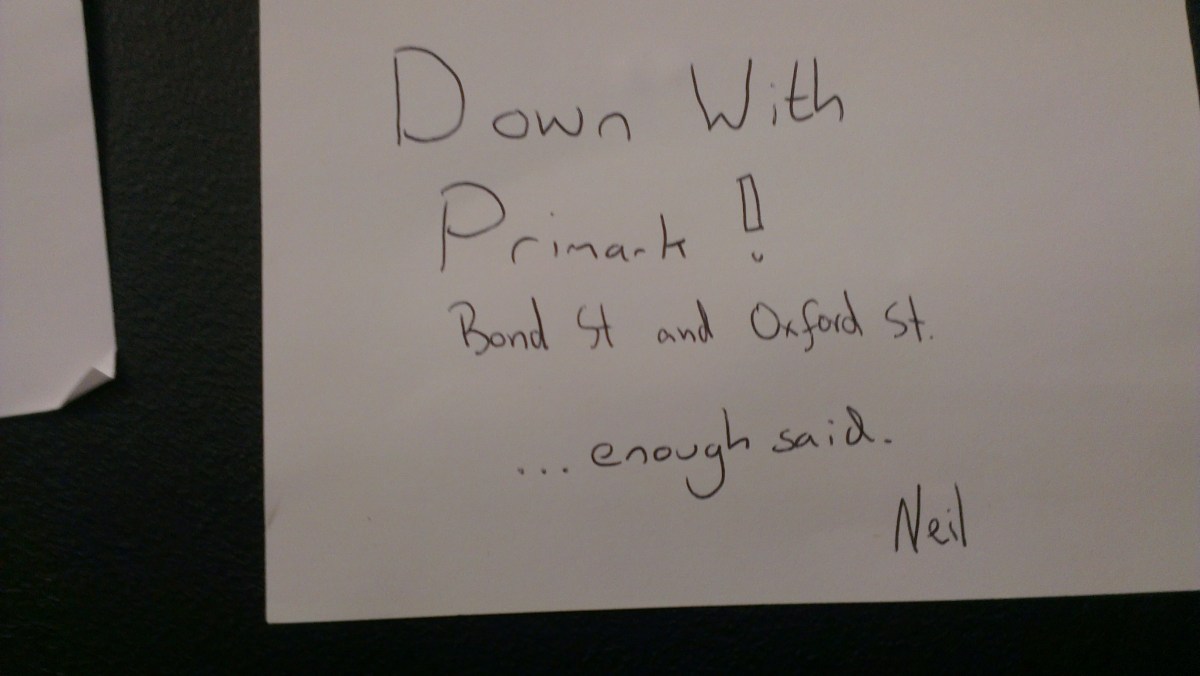 Down With
Primark!
Bond St and Oxford St.
... enough said.
Neil